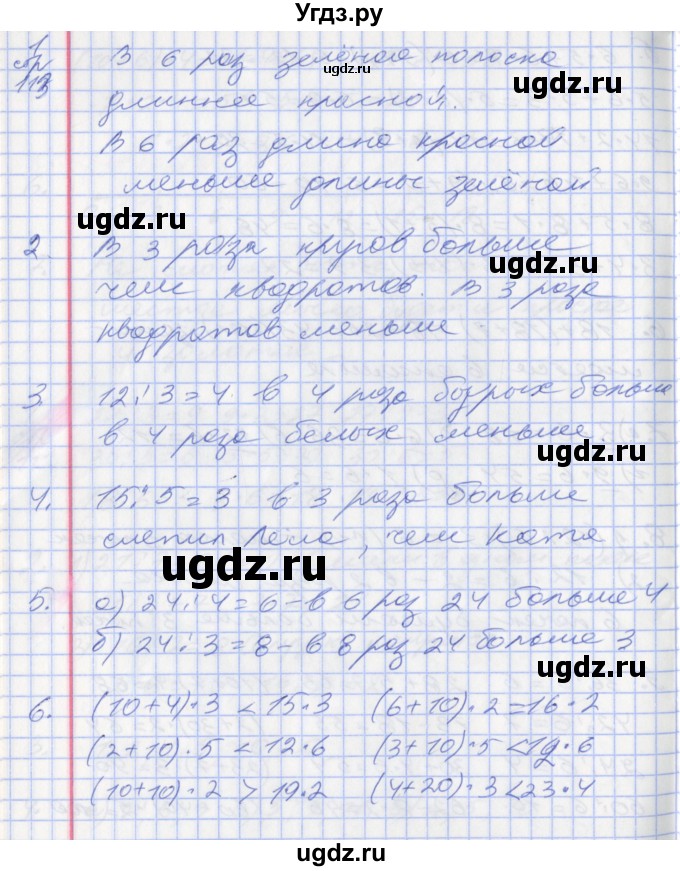 Угдз.ру
1
стр
113
В 6 раз зелёная полоска
ugdz.ru
ugdz.ru
длиннее красной.
В 6 раз длина красной
меньше длины зелёной
ugdz.ru
2. В 3 раза кругов больше
ugdz.ru
чем квадратов. В 3 раза
квадратов меньше
ugdz.ru
3 12:3=4 в 4 раза больше
ugdz.ru
в 4 раза белых меньше.
ugdz.ru
4. 15:5=3 в 3 раза больше
слепил Лёла, чем Катя
ugdz.ru
ugdz.ru
5. а) 24:4=6-в 6 раз 24 больше 4
б) 24:3=8-в 8 раз 24 больше 3
ugdz.ru
6. (10+4)·3 < 15·3 (6+10)·2=16·2
ugdz.ru
(2+10)·5 < 12·6 (3+10)·5 < 19·6
(10+10)·2 > 19·2 (4+20)·3<23·4
ugdz.ru
ugdz.ru